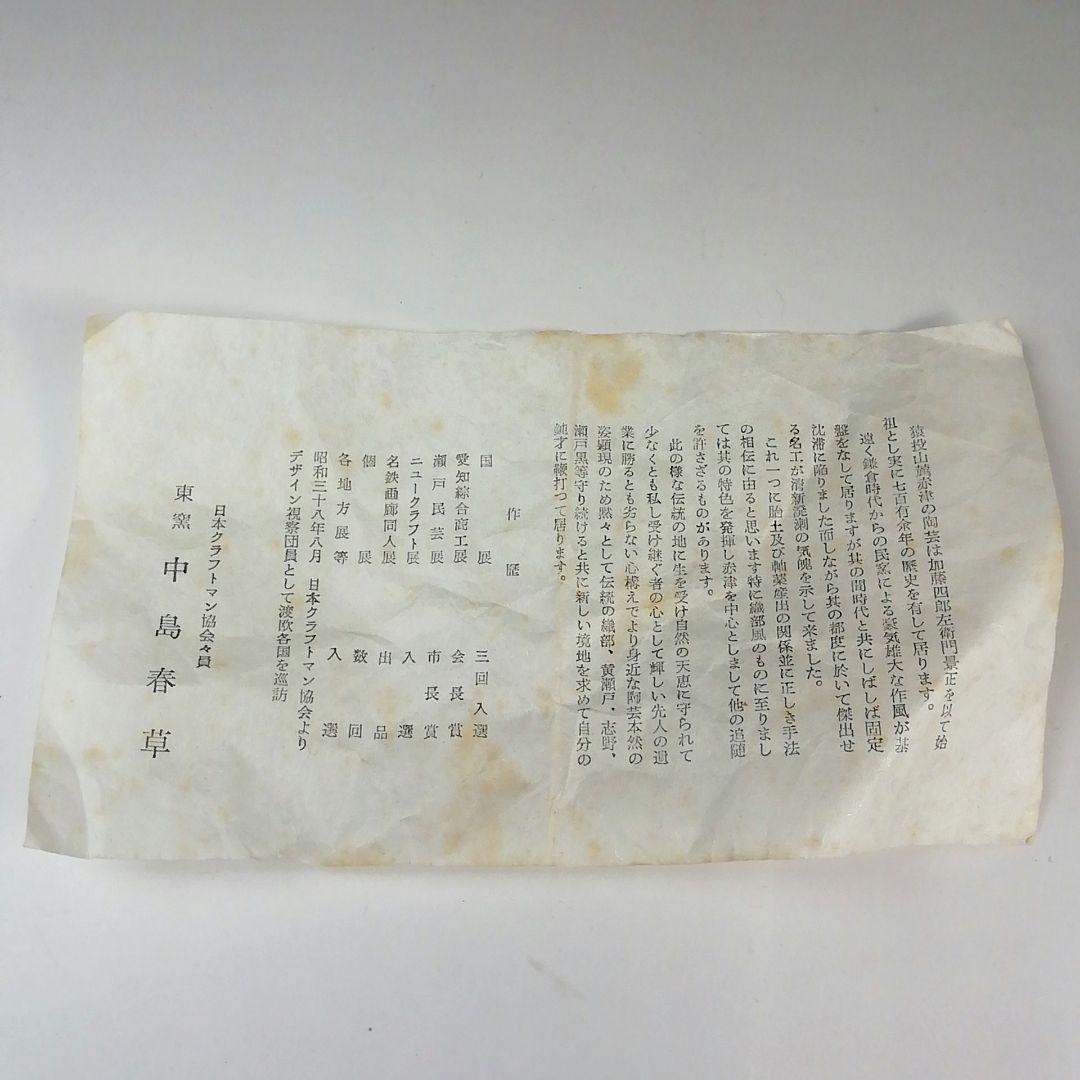 猿投山麓赤津の陶芸は加藤四郎左衛門景正を以て始
祖とし実に七百有余年の歴史を有して居ります。
遠く鎌倉時代からの民窯による豪気雄大な作風が基
盤をなして居りますが其の間時代と共にしばしば固定
沈滞に陥りました而しながら其の都度に於いて傑出せ
る名工が清新溌溂の気魄を示して来ました。
これ一つに胎土及び釉薬産出の関係並に正しき手法
の相伝に由ると思います特に織部風のものに至りまし
ては其の特色を発揮し赤津を中心としまして他の追随
を許さざるものがあります。
此の様な伝統の地に生を受け自然の天恵に守られて
少なくとも私し受け継ぐ者の心として輝しい先人の遺
業に勝るとも劣らない心構えでより身近な陶芸本然の
姿顕現のため黙々として伝統の織部、黄瀬戸、志野、
瀬戸黒等守り続けると共に新しい境地を求めて自分の
鈍才に鞭打つて居ります。
作歴
国展 三回入選
愛知綜合商工展 会長賞
瀬戸民芸展 市長賞
ニュークラフト展 入選
名鉄画廊同人展 出品
個展 数回
各地方展等 入選
昭和三十八年八月 日本クラフトマン協会より
デザイン視察団員として渡欧各国を巡訪
日本クラフトマン協会々員
東窯 中島春草